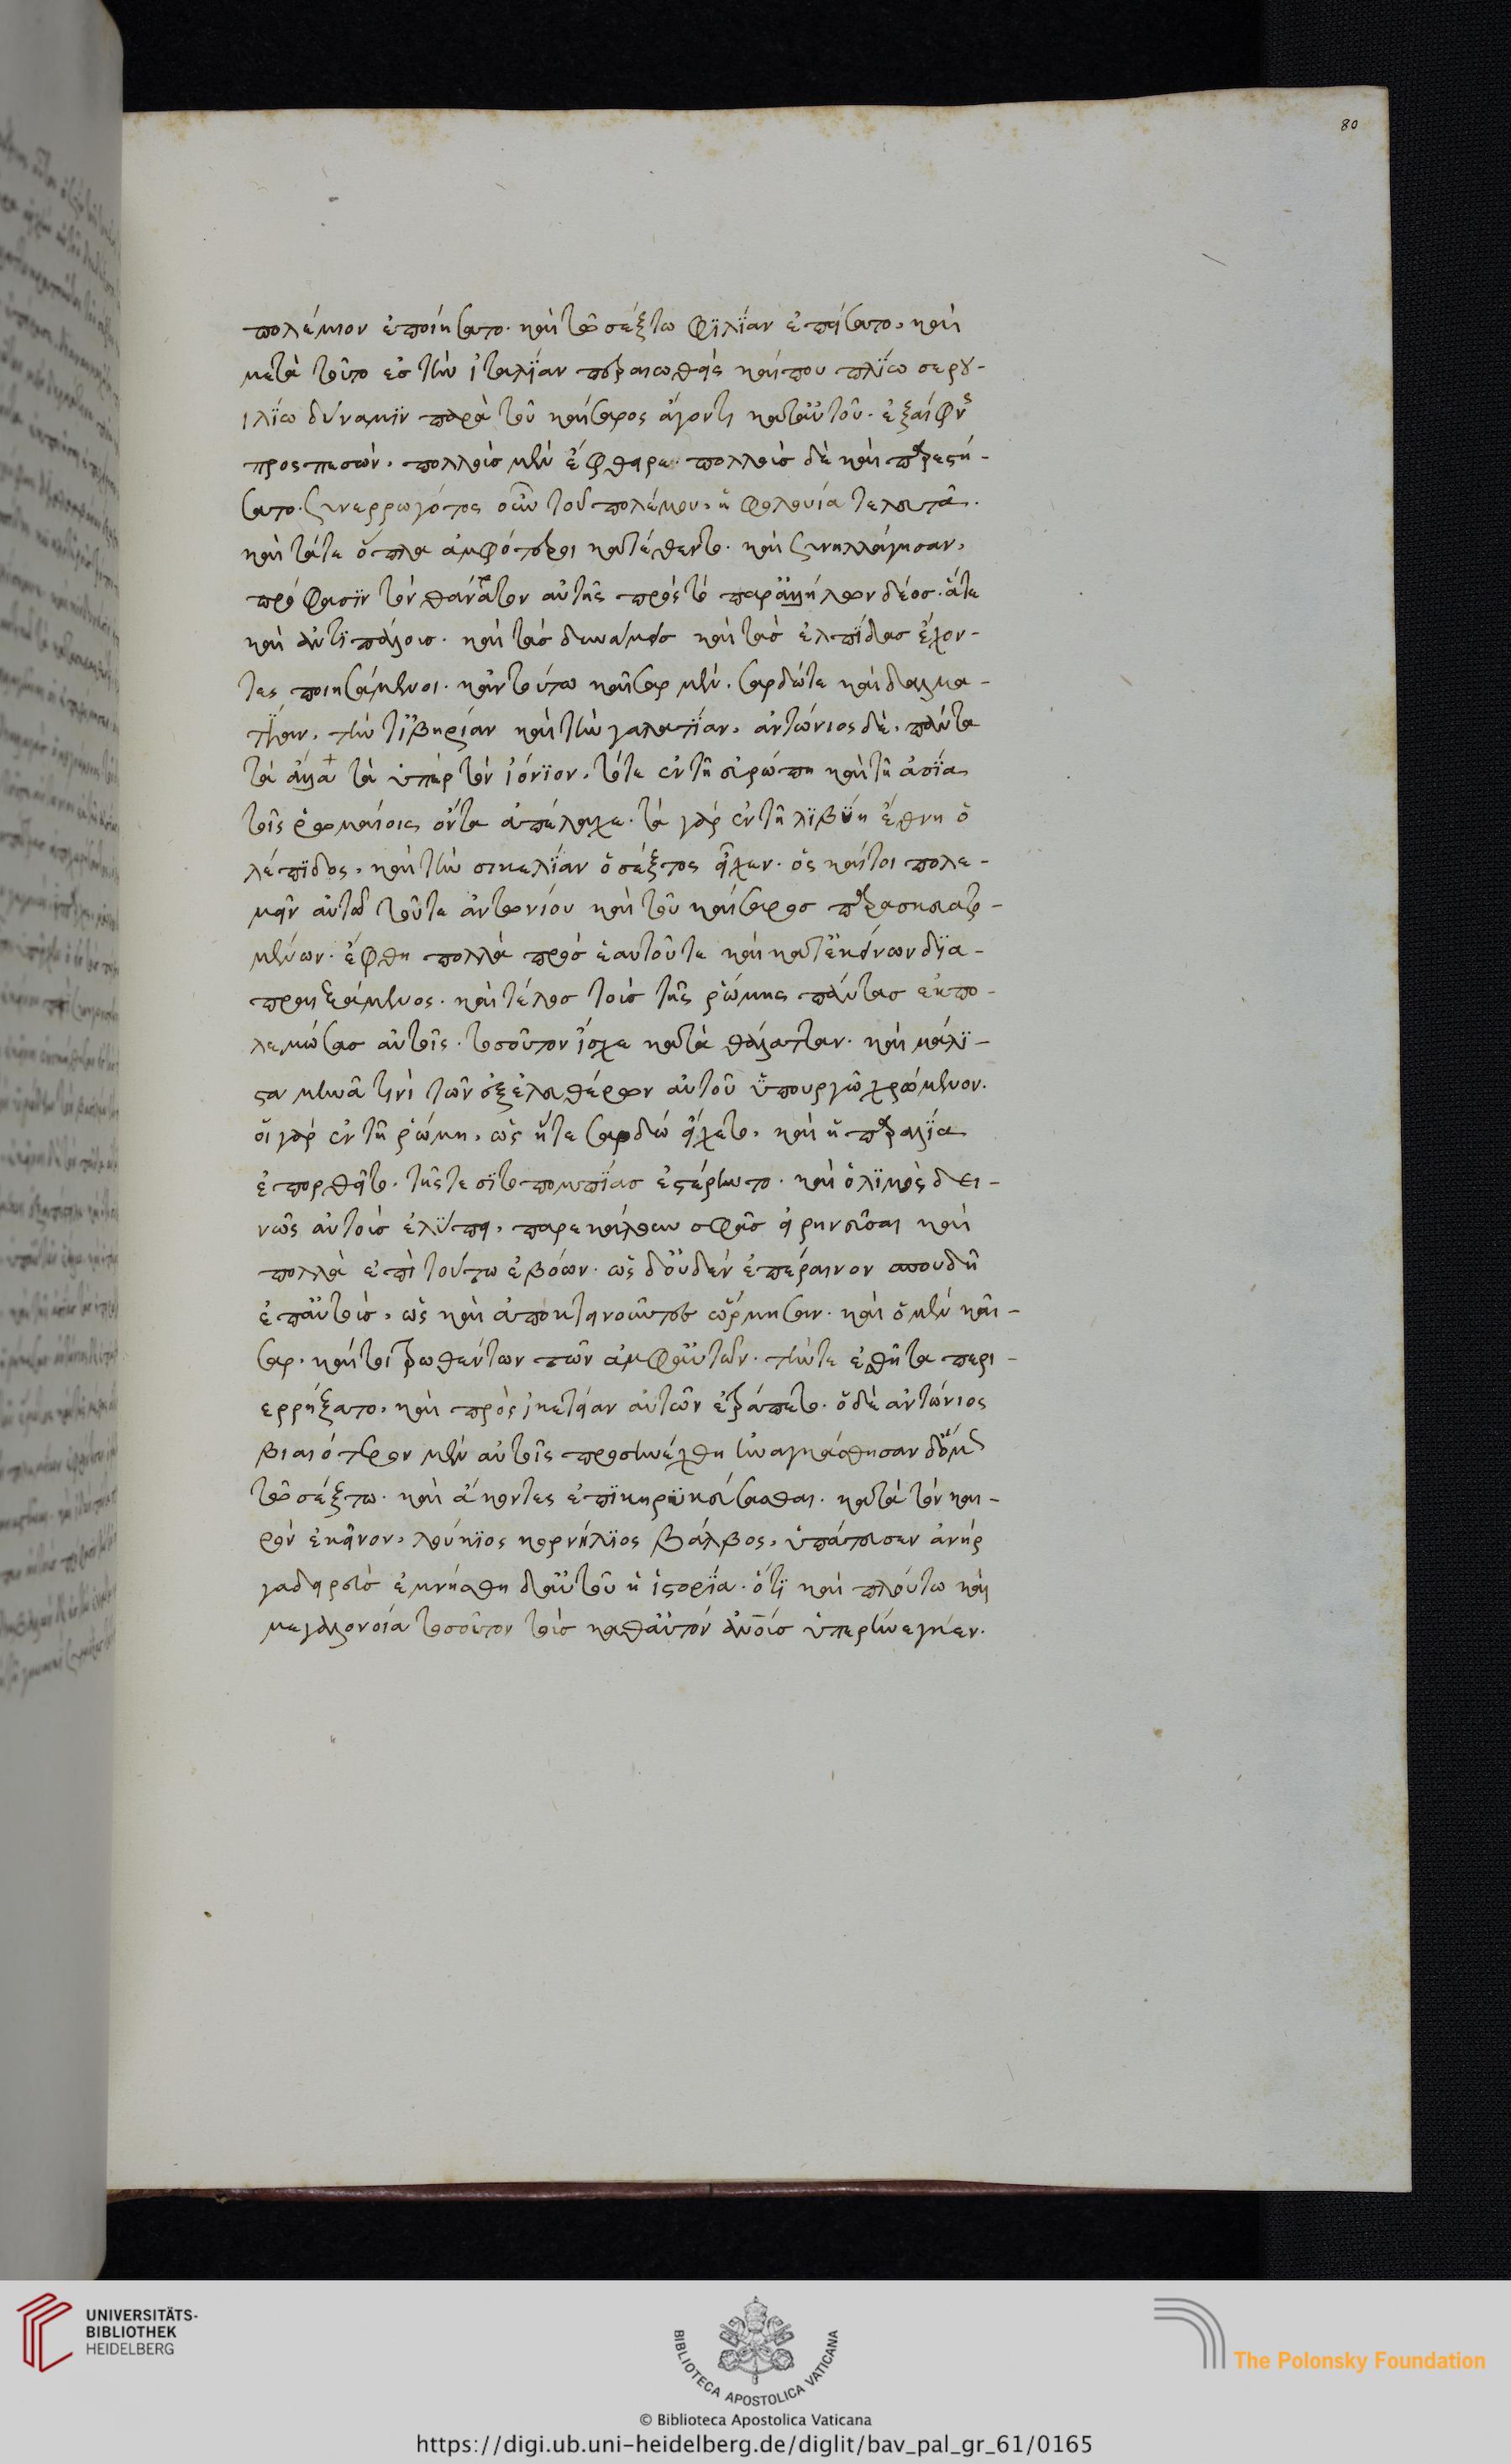 80
πολέμιον ἐποιήσατο. καὶ τῶ σέξτω φϊλΐαν ἐσπείσατο, καὶ
μετὰ τοῦτο ἐσ τὴν ἰταλΐαν περαιωθεὶς καίπου πλΐω σερου-
ιλΐω δύναμϊν παρὰ τοῦ καίσαρος ἄγοντι κατ αὐτοῦ. ἐξαίφνης
προσπεσὼν, πολλοὺσ μὲν ἔφθειρε. πολλοὺσ δὲ καὶ παρεστή-
σατο. συνερρωγότος οὖν τοῦ πολέμου, ἡ φολουία τελευτᾶ.
καὶ τάτε ὅπλα ἀμφότεροι κατέθεντο. καὶ συνηλλάγησαν,
πρόφασϊν τὸν θάνατον αὐτῆς πρὸς τὸ παρ ἀλλήλων δέοσ. ἅτε
καὶ ἀντιπάλουσ. καὶ τὰσ δυνάμεισ καὶ τὰσ ἐλπΐδασ ἔχον-
τες ποιησάμενοι. κἀν τούτω καῖσαρ μὲν, σαρδώτε καὶ δαλμα-
τΐαν, τήντ ϊβηρίαν καὶ τὴν γαλατΐαν, ἀντώνιος δὲ, πάντα
τὰ ἄλλα τὰ ὑπὲρ τὸν ἰόνϊον, τότε ἐν τῆ εὐρώπη καὶ τῆ ἀσΐα
τοῖς ῥωμαίοις ὄντα ἀπέλαχε. τὰ γὰρ ἐν τῆ λϊβΰη ἔθνη ὁ
λέπϊδος, καὶ τὴν σικελΐαν ὁ σέξτος εἶχεν. ὃς καίτοι πολε-
μεῖν αὐτῶ τοῦτε ἀντωνίου καὶ τοῦ καίσαροσ παρασκευαζο-
μένων. ἔφθη πολλὰ πρὸσ ἑαυτοῦτε καὶ κατ ἐκείνων δϊα-
πραξάμενος. καὶ τέλοσ τοὺσ τῆς ῥώμης πάντασ ἐκπο-
λεμώσασ αὐτοῖς. τοσοῦτον ἴσχε κατὰ θάλατταν. καὶ μάλϊ-
στα μηνᾶ τινὶ τῶν ἐξελευθέρων αὐτοῦ ὑπουργῶ χρώμενον.
οἱ γὰρ ἐν τῆ ῥώμη, ὡς ἥτε σαρδὼ εἴχετο, καὶ ἡ παραλΐα
ἐπορθεῖτο. τῆςτε σϊτοπομπΐασ ἐστέρηντο. καὶ ὁ λϊμὸς δει-
νῶς αὐτοὺσ ἐλύπει, παρεκάλουν σφᾶσ εἰρηνεῦσαι καὶ
πολλὰ ἐπὶ τούτω ἐβόων. ὡς δ οὐδὲν ἐπέραινον σπουδῆ
ἐπ αὐτοὺσ, ὡς καὶ ἀποκτενοῦντεσ ὥρμησαν. καὶ ὁ μὲν καῖ-
σαρ, καίτοι τρωθέντων τῶν ἀμφ αὐτὸν. τήντε ἐσθῆτα περι-
ερρήξατο, καὶ πρὸς ἱκετείαν αὐτῶν ἐτράπετο. ὁ δὲ ἀντώνιος
βιαιότερον μὲν αὐτοῖς προσηνέχθη ἠναγκάσθησαν δ ὅμως
τῶ σέξτω. καὶ ἄκοντες ἐπϊκηρυκεύσασθαι. κατὰ τὸν και-
ρὸν ἐκεῖνον, λούκϊος κορνήλϊος βάλβος, ὑπάτευσεν ἀνὴρ
γαδειρεὺσ ἐμνήσθη δ αὐτοῦ ἡ ἱστορΐα. ὅτϊ καὶ πλούτω καὶ
μεγαλονοία τοσοῦτον τοὺσ καθ αὑτὸν ἀνοῦσ ὑπερήνεγκεν.
UNIVERSITÄTS-
BIBLIOTHEK
HEIDELBERG
BIBLIOTECA APOSTOLICA VATICANA
The Polonsky Foundation
© Biblioteca Apostolica Vaticana
https://digi.ub.uni-heidelberg.de/diglit/bav_pal_gr_61/0165